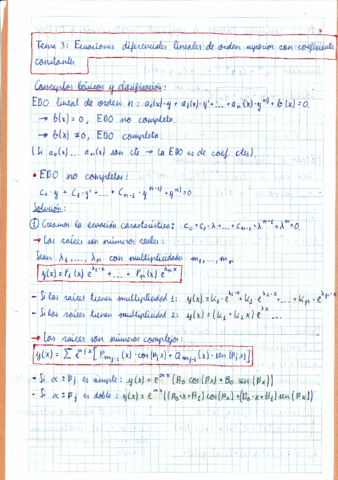 Tema 3: Ecuaciones diferenciales lineales de orden superior con coeficientes
constantes.
Conceptos básicos y clasificación:
EDO lineal de orden n: a₀(x)·y + a₁(x)·y' + ... + aₙ(x)·yⁿ⁾ + b(x) = 0.
→ b(x) = 0, EDO no completa.
→ b(x) ≠ 0, EDO completa.
(Si a₀(x)... aₙ(x) son cte → la EDO es de coef. ctes).
• EDO no completas:
c₀·y + c₁·y' + ... + cₙ₋₁·yⁿ⁻¹⁾ + yⁿ⁾ = 0.
Solución:
① Creamos la ecuación característica: c₀ + c₁·λ + ... + cₙ₋₁·λⁿ⁻¹ + λⁿ = 0.
→ Las raíces son números reales:
Sean λ₁, ..., λₙ con multiplicidades m₁, ..., mₙ
y(x) = P₁(x) e^λ₁·x + ... + Pₙ(x) e^λₙx
- Si las raíces tienen multiplicidad 1: y(x) = k₁·e^λ₁·x + k₂·e^λ₂·x + ... +
- Si las raíces tienen multiplicidad 2: y(x) = (k₁ + k₂x) e^λx ...
→ Las raíces son números complejos:
y(x) = Σ e^αjx [Pmj₋₁(x)·cos(βjx) + Qmj₋₁(x)·sen(βjx)]
- Si α ± βj es simple: y(x) = e^αx (A₀ cos(βx) + B₀ sen(βx))
- Si α ± βj es doble: y(x) = e^αx ((A₀·x + A₁) cos(βx) + (B₀·x + B₁) sen(βx))